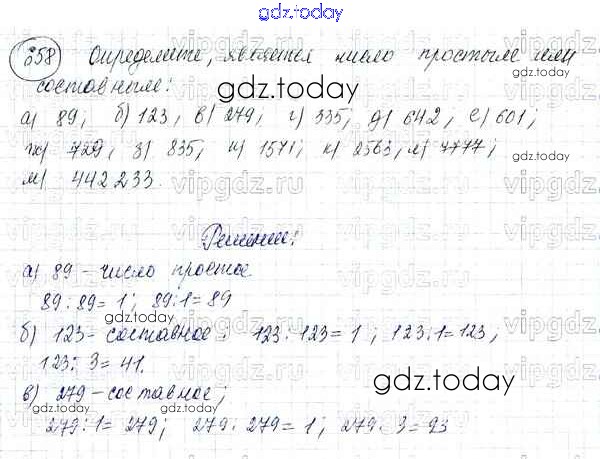 gdz.today
658 Определите, является число простым или
составным:
gdz.today
а) 89; б) 123, в) 279; г) 335; д) 642, е) 601;
ж) 729, з) 835, и) 1571; к) 2563, л) 7777;
gdz.today
м) 442233.
vipgdz.ru
Решение:
а) 89 - число простое.
89 : 89 = 1; 89:1 = 89
gdz.today
б) 123 - составное: 123 : 123 = 1; 123:1=123,
123 : 3 = 41.
gdz.today
в) 279 - составное;
279:1 = 279; 279 : 279 = 1; 279 : 3 = 93
gdz.today